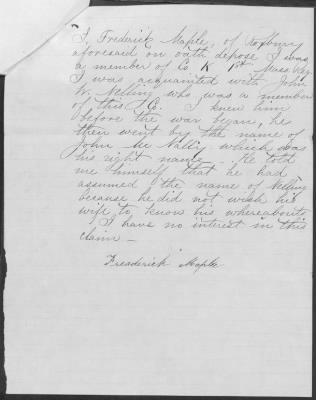 I, Frederick Maple, of Roxbury
aforesaid on oath depose I was
a member of Co. K 1st Mass Reg.
I was acquainted with John
W. Nelling who was a member
of this Co. I knew him
before the war began, he
then went by the name of
John Mc Nally which was
his right name. He told
me himself that he had
assumed the name of Nelling
because he did not wish his
wife to know his whereabouts
I have no interest in this
claim —
Freaderick Maple